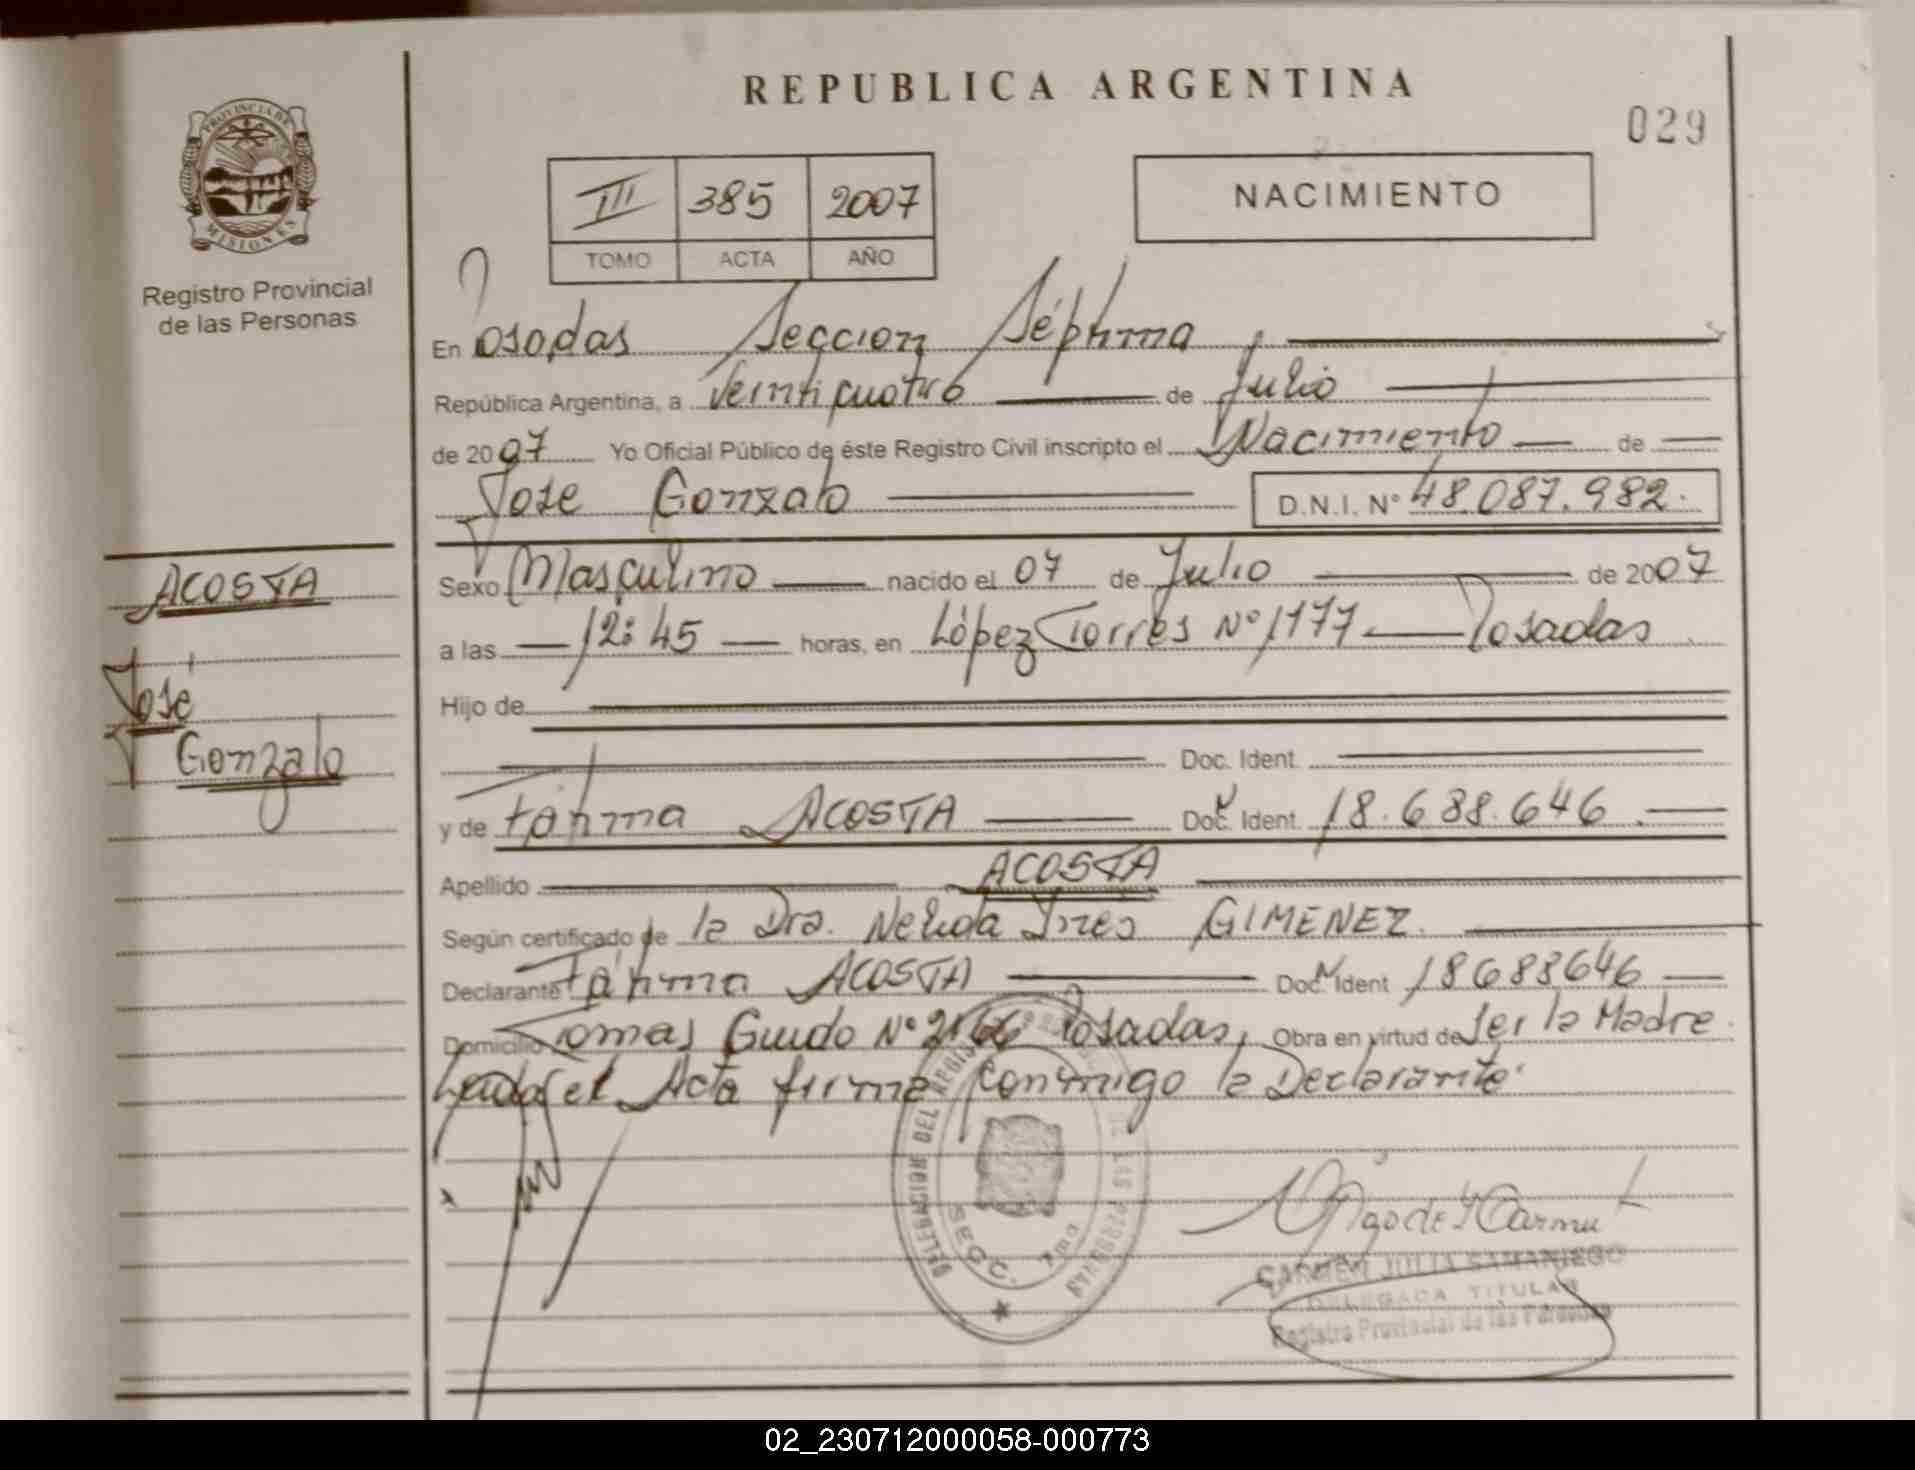 REPUBLICA ARGENTINA
029
PROVINCIA DE
MISIONES
Registro Provincial
de las Personas
III 385 2007
TOMO ACTA AÑO
NACIMIENTO
En Posadas Sección Séptima
República Argentina, a Veinticuatro de Julio
de 2007 Yo Oficial Público de éste Registro Civil inscripto el Nacimiento de
José Gonzalo D.N.I. Nº 48.087.982.
ACOSTA
José
Gonzalo
Sexo Masculino nacido el 07 de Julio de 2007
a las 12:45 horas, en López Torres Nº 1177 Posadas
Hijo de
Doc. Ident.
y de Fátima ACOSTA Doc. Ident. 18.688.646.
Apellido ACOSTA
Según certificado de la Dra. Nelida Ines GIMENEZ.
Declarante Fátima ACOSTA Doc. Ident 18688646
Domicilio Tomas Guido Nº 2166 Posadas, Obra en virtud de Ser la Madre.
Leida el Acta firma conmigo la Declarante.
DELEGACION DEL
DE LAS PERSONAS
SECC. 7ma
CARMEN JULIA SAMANIEGO
DELEGADA TITULAR
Registro Provincial de las Personas
02_230712000058-000773